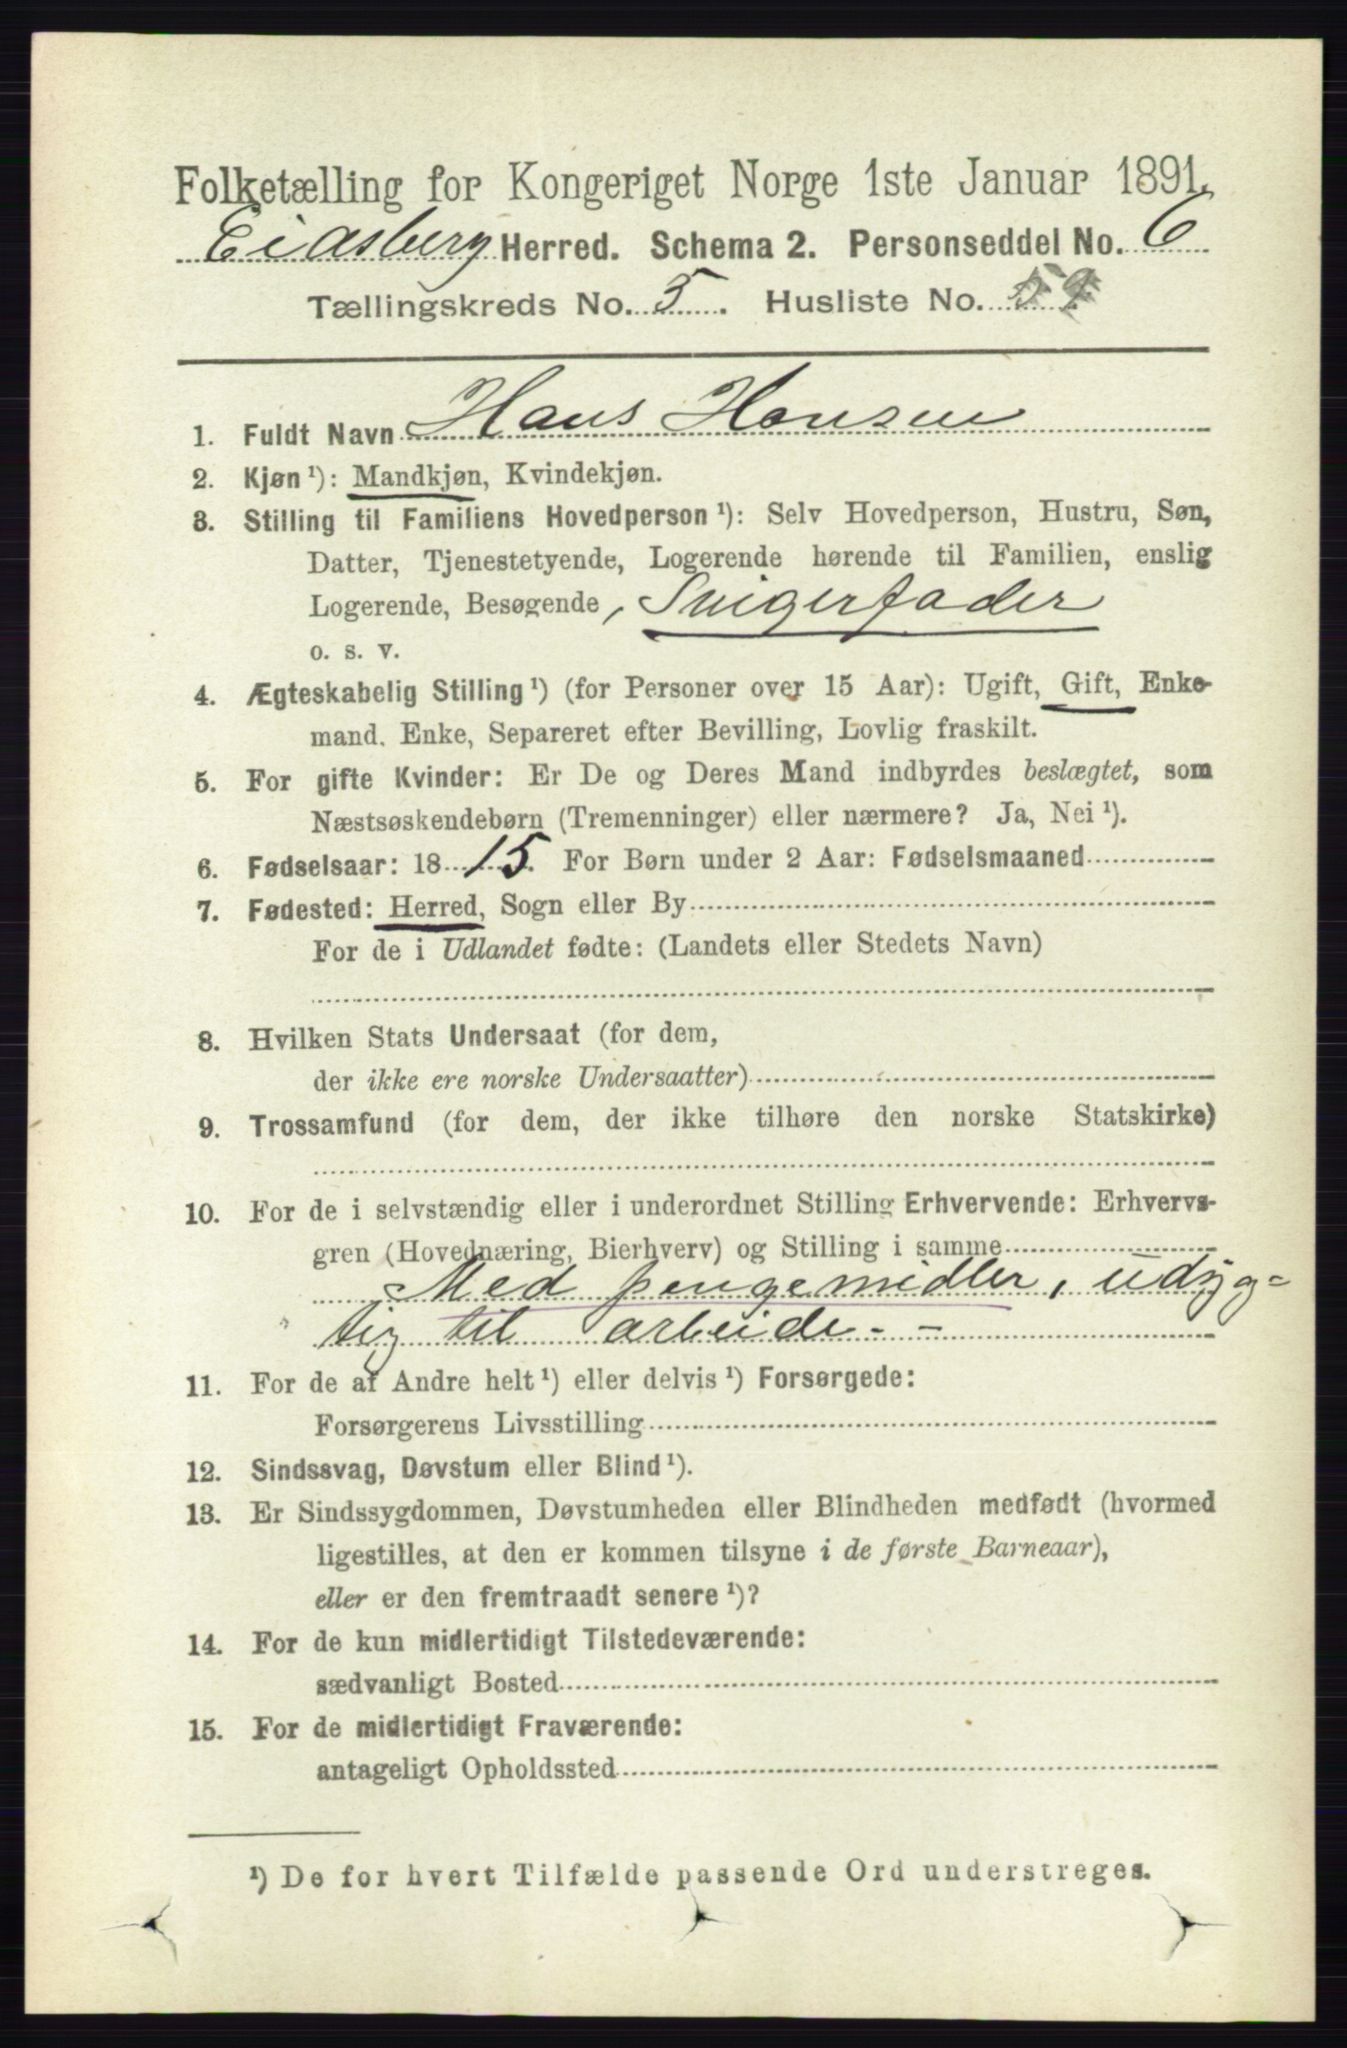 Folketælling for Kongeriget Norge 1ste Januar 1891.
Eidsberg Herred. Schema 2. Personseddel No. 6
Tællingskreds No. 5. Husliste No. 59
1. Fuldt Navn Hans Hansen
2. Kjøn ¹): Mandkjøn, Kvindekjøn.
3. Stilling til Familiens Hovedperson ¹): Selv Hovedperson, Hustru, Søn,
Datter, Tjenestetyende, Logerende hørende til Familien, enslig
Logerende, Besøgende, Svigerfader
o. s. v.
4. Ægteskabelig Stilling ¹) (for Personer over 15 Aar): Ugift, Gift, Enke-
mand. Enke, Separeret efter Bevilling, Lovlig fraskilt.
5. For gifte Kvinder: Er De og Deres Mand indbyrdes beslægtet, som
Næstsøskendebørn (Tremenninger) eller nærmere? Ja, Nei ¹).
6. Fødselsaar: 1815. For Børn under 2 Aar: Fødselsmaaned
7. Fødested: Herred, Sogn eller By
For de i Udlandet fødte: (Landets eller Stedets Navn)
8. Hvilken Stats Undersaat (for dem,
der ikke ere norske Undersaatter)
9. Trossamfund (for dem, der ikke tilhøre den norske Statskirke)
10. For de i selvstændig eller i underordnet Stilling Erhvervende: Erhvervs-
gren (Hovednæring, Bierhverv) og Stilling i samme
Med pengemidler, udyg=
tig til arbeide. -
11. For de af Andre helt ¹) eller delvis ¹) Forsørgede:
Forsørgerens Livsstilling
12. Sindssvag, Døvstum eller Blind ¹).
13. Er Sindssygdommen, Døvstumheden eller Blindheden medfødt (hvormed
ligestilles, at den er kommen tilsyne i de første Barneaar),
eller er den fremtraadt senere ¹)?
14. For de kun midlertidigt Tilstedeværende:
sædvanligt Bosted
15. For de midlertidigt Fraværende:
antageligt Opholdssted
¹) De for hvert Tilfælde passende Ord understreges.